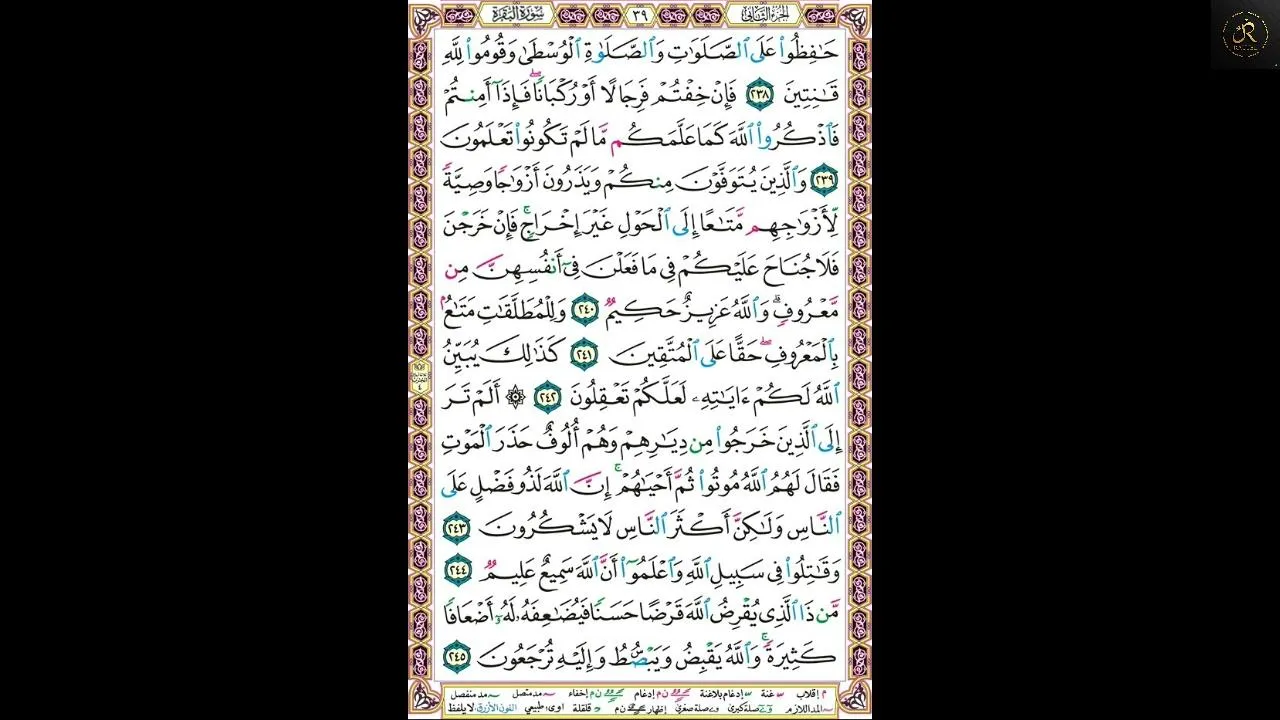 الجزء الثاني
٣٩
سورة البقرة
حَـٰفِظُوا۟ عَلَى ٱلصَّلَوَٰتِ وَٱلصَّلَوٰةِ ٱلْوُسْطَىٰ وَقُومُوا۟ لِلَّهِ
قَـٰنِتِينَ ٢٣٨ فَإِنْ خِفْتُمْ فَرِجَالًا أَوْ رُكْبَانًا ۖ فَإِذَآ أَمِنتُمْ
فَٱذْكُرُوا۟ ٱللَّهَ كَمَا عَلَّمَكُم مَّا لَمْ تَكُونُوا۟ تَعْلَمُونَ
٢٣٩ وَٱلَّذِينَ يُتَوَفَّوْنَ مِنكُمْ وَيَذَرُونَ أَزْوَٰجًا وَصِيَّةً
لِّأَزْوَٰجِهِم مَّتَـٰعًا إِلَى ٱلْحَوْلِ غَيْرَ إِخْرَاجٍ ۚ فَإِنْ خَرَجْنَ
فَلَا جُنَاحَ عَلَيْكُمْ فِى مَا فَعَلْنَ فِىٓ أَنفُسِهِنَّ مِن
مَّعْرُوفٍ ۗ وَٱللَّهُ عَزِيزٌ حَكِيمٌ ٢٤٠ وَلِلْمُطَلَّقَـٰتِ مَتَـٰعٌۢ
بِٱلْمَعْرُوفِ ۖ حَقًّا عَلَى ٱلْمُتَّقِينَ ٢٤١ كَذَٰلِكَ يُبَيِّنُ
ٱللَّهُ لَكُمْ ءَايَـٰتِهِۦ لَعَلَّكُمْ تَعْقِلُونَ ٢٤٢ ۞ أَلَمْ تَرَ
إِلَى ٱلَّذِينَ خَرَجُوا۟ مِن دِيَـٰرِهِمْ وَهُمْ أُلُوفٌ حَذَرَ ٱلْمَوْتِ
فَقَالَ لَهُمُ ٱللَّهُ مُوتُوا۟ ثُمَّ أَحْيَـٰهُمْ ۚ إِنَّ ٱللَّهَ لَذُو فَضْلٍ عَلَى
ٱلنَّاسِ وَلَـٰكِنَّ أَكْثَرَ ٱلنَّاسِ لَا يَشْكُرُونَ ٢٤٣
وَقَـٰتِلُوا۟ فِى سَبِيلِ ٱللَّهِ وَٱعْلَمُوٓا۟ أَنَّ ٱللَّهَ سَمِيعٌ عَلِيمٌ ٢٤٤
مَّن ذَا ٱلَّذِى يُقْرِضُ ٱللَّهَ قَرْضًا حَسَنًا فَيُضَـٰعِفَهُۥ لَهُۥٓ أَضْعَافًا
كَثِيرَةً ۚ وَٱللَّهُ يَقْبِضُ وَيَبْصُۜطُ وَإِلَيْهِ تُرْجَعُونَ ٢٤٥
م إقلاب غنة إدغام بلاغنة ن م إدغام ن م إخفاء مد متصل مد منفصل
المد اللازم صلة كبرى صلة صغرى إظهار ن م قلقلة طبيعي اللون الأزرق لا يلفظ